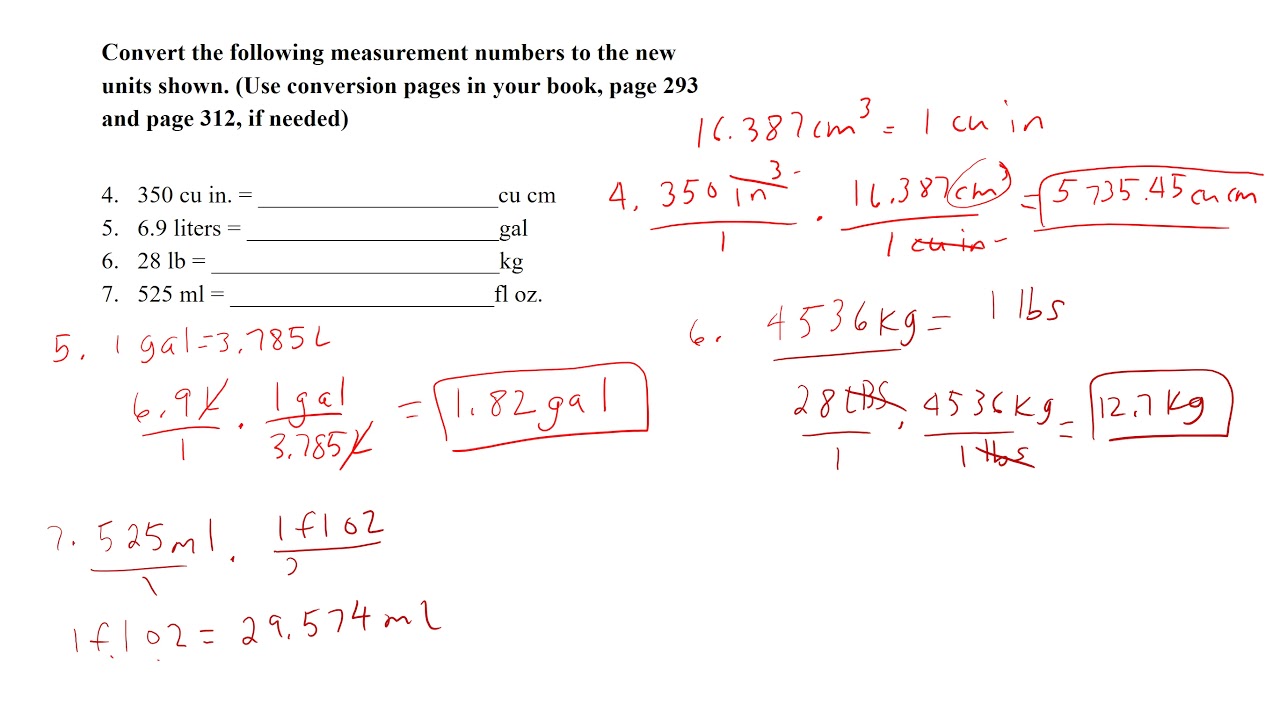 Convert the following measurement numbers to the new
units shown. (Use conversion pages in your book, page 293
and page 312, if needed)
4. 350 cu in. = ______________________cu cm
5. 6.9 liters = _______________________gal
6. 28 lb = __________________________kg
7. 525 ml = ________________________fl oz.
16.387cm³ = 1 cu in
4. 350 in³ / 1 · 16.387cm³ / 1 cu in = 5735.45 cu cm
5. 1 gal = 3.785L
6.9L / 1 · 1gal / 3.785L = 1.82gal
6. 4536kg = 1 lbs
28 LBS / 1 · 4536Kg / 1 lbs = 12.7Kg
7. 525ml / 1 · 1floz / 2
1floz = 29.574ml